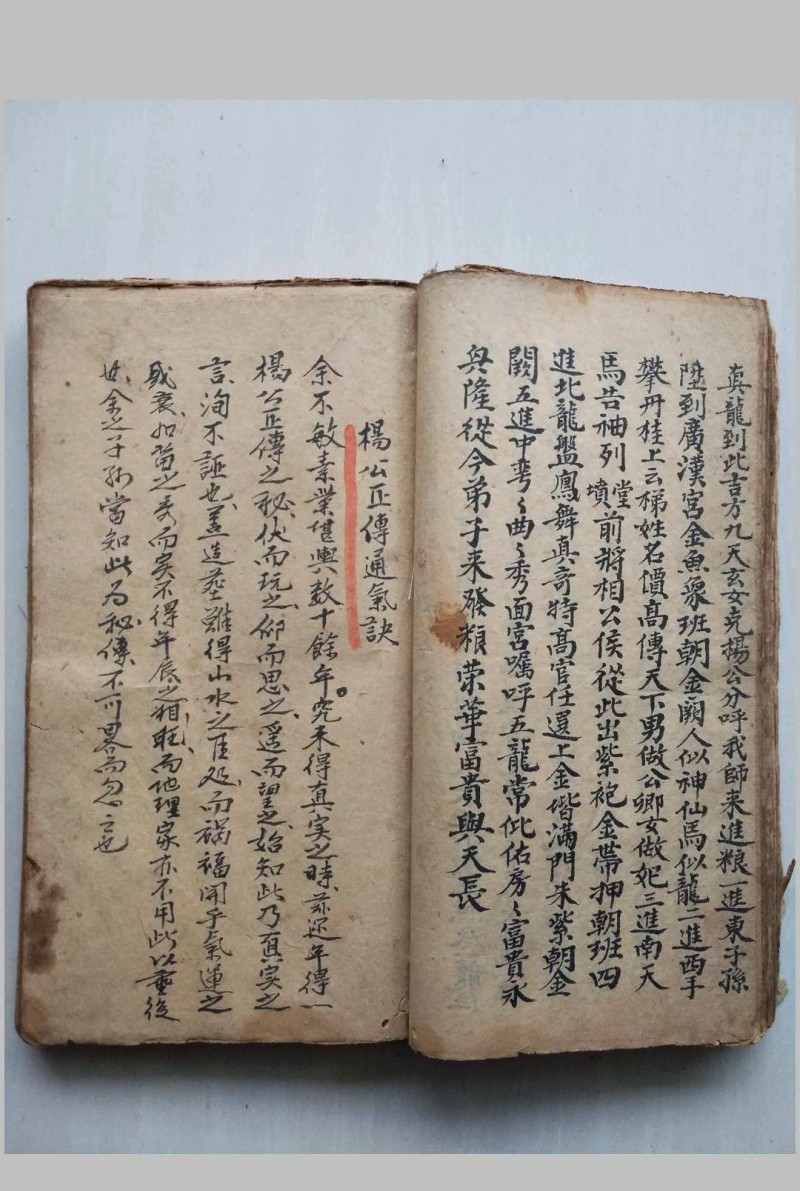 真龍到此吉方九天玄女克楊公分呼我師来進粮一進東子孫
陞到廣漢宮金魚衆班朝金闕人似神仙馬似龍二進西手
攀丹桂上云梯姓名價髙傳天下男做公卿女做妃三進南天
馬告袖列堂墳前將相公侯從此出紫袍金帶押朝班四
進北龍盤鳳舞真竒特髙官任選上金堦滿門朱紫朝金
闕五進中弯〻曲〻秀面宮嘱呼五龍常仳佑房〻富貴永
興隆從今弟子来發粮荣華富貴與天長
楊公正傳通氣訣
余不敏素業堪輿数十餘年究未得真实之時茲近年得一
楊公正傳之秘伏而玩之仰而思之遥而望之始知此乃真实之
言洵不誣也葢造塟雖得山水之佳処而禍福開乎氣運之
盛衰如笛之受而矣不得年辰之相旺而地理家亦不用此以垂後
世余之子孙當知此為秘傳不可畧而忽之也